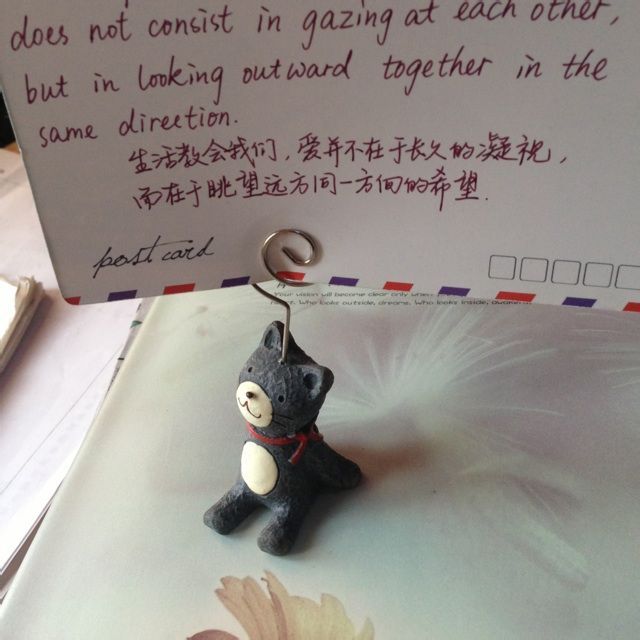 does not consist in gazing at each other,
but in looking outward together in the
same direction.
生活教会我们，爱并不在于长久的凝视，
而在于眺望远方同一方向的希望.
post card
Your vision will become clear only when
Who looks outside, dreams. Who looks inside, awaken